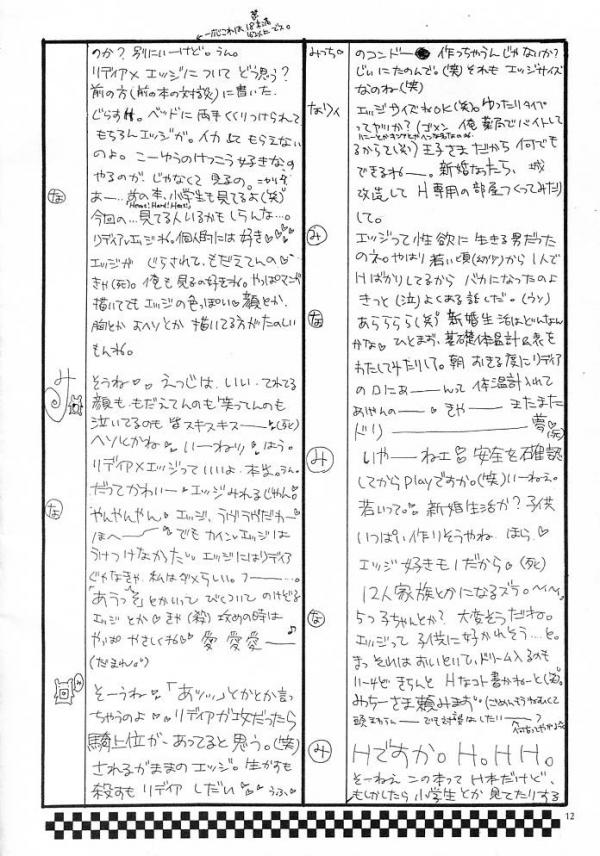 のか?別にいーけど。うん。
リディア×エッジについて どう思う?
前の方(前の本の対談)に書いた
ぐらすけ。ベッドに両手くくりつけられて
もちろんエッジが。イカ もらえない
のよ。こーゆうのけっこう好きなの
やるのが じゃなくて 見るの。
な あー…前の本、小学生も見てるよ(笑)
今回の…見てる人いるかもしらんな…。
リディア×エッジね。個人的には 好き♥
エッジが ぐらされて、もだえてんの
きゃ(死)。俺も見るの好きね。やっぱマンガ
描いてても エッジの色っぽい顔とか、
胸とか おヘソとか 描いてる方がたのしい
もんね。
み そうね♥♥ えっじは、いい。てれてる
顔も、もだえてんのも 笑ってんのも
泣いてるのも 皆スキスキー(死)
ヘソとかね いーねー♥ ほう。
リディア×エッジって いいよ、本当。うん。
だってかわいー エッジみれるじゃん。
な やんやんやん♥ エッジ、
ほへーー♥ でも カイン×エッジは
うけつけなかったい。エッジにはリディア
じゃなきゃ 私はダメらしい。フーー…。
「あうっそ」とかいって びくついて のけぞる
エッジとか きゃ(殺) 攻めの時は
やっぱ やさしくね♥ 愛 愛 愛ーー♪
(だまれ。)
み そーうね♥「あッッ」とかとか言っ
ちゃうのよ♥♥ リディアが攻だったら
騎上位が、あってると 思う。(笑)
されるがままの エッジ。生かすも
殺すも リディア しだい♥ うふ♥
みっち。 のコンドー● 作っちゃうんじゃないか?
じいにたのんで。(笑) それも エッジサイズ
なのね(笑)
エッジサイズねOK(笑)。ゆったりタイプ
ってヤツか?(ゴメン 俺 薬局でバイトして
るからて(笑) 王子さまだから 何でも
できるねー。新婚なったら、城
改造して H専用の部屋つくってみたり
して。
み エッジって 性欲に 生きる男だった
のネ。やはり 若い から 1人で
Hばかりしてるから バカになったのよ
きっと(泣) よくある話しだ。(ウソ)
な あらららら(笑) 新婚生活はどんなん
かな♥ ひとまず、基礎体温計&表を
わたしてみたりして。朝 おきる度にリディア
の口にあーーんって 体温計入れて
あげんのーー♥ きゃーー またまた
ドリーーーーーー夢(死)
み いやーーねェ♥ 安全を確認
してからplayですか。(笑)いーねぇ。
若いって。新婚生活か? 子供
いっぱい 作りそうやね ほら♥
エッジ 好きもんだから♥(死)
12人家族とかになるズラ。へへへ。
な 5つ子ちゃんとか? 大変そうだね。
エッジって 子供に 好かれそう…と。
ま、それはおいといて、ドリーム入るのも
いーけど きちんと Hなコト書かねーと(笑)。
みちーさま頼みます。
み Hですか。H。HH。
そーねぇ この本って H本だけど、
もしかしたら 小学生とか 見てたりする
12